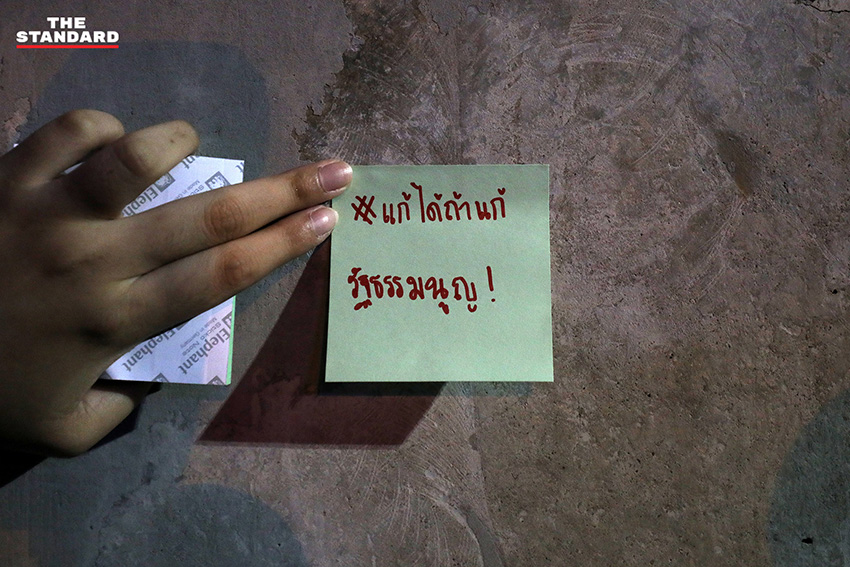 THE
STANDARD
#แก้ได้ถ้าแก้
รัฐธรรมนูญ!
Elephant
Elephant